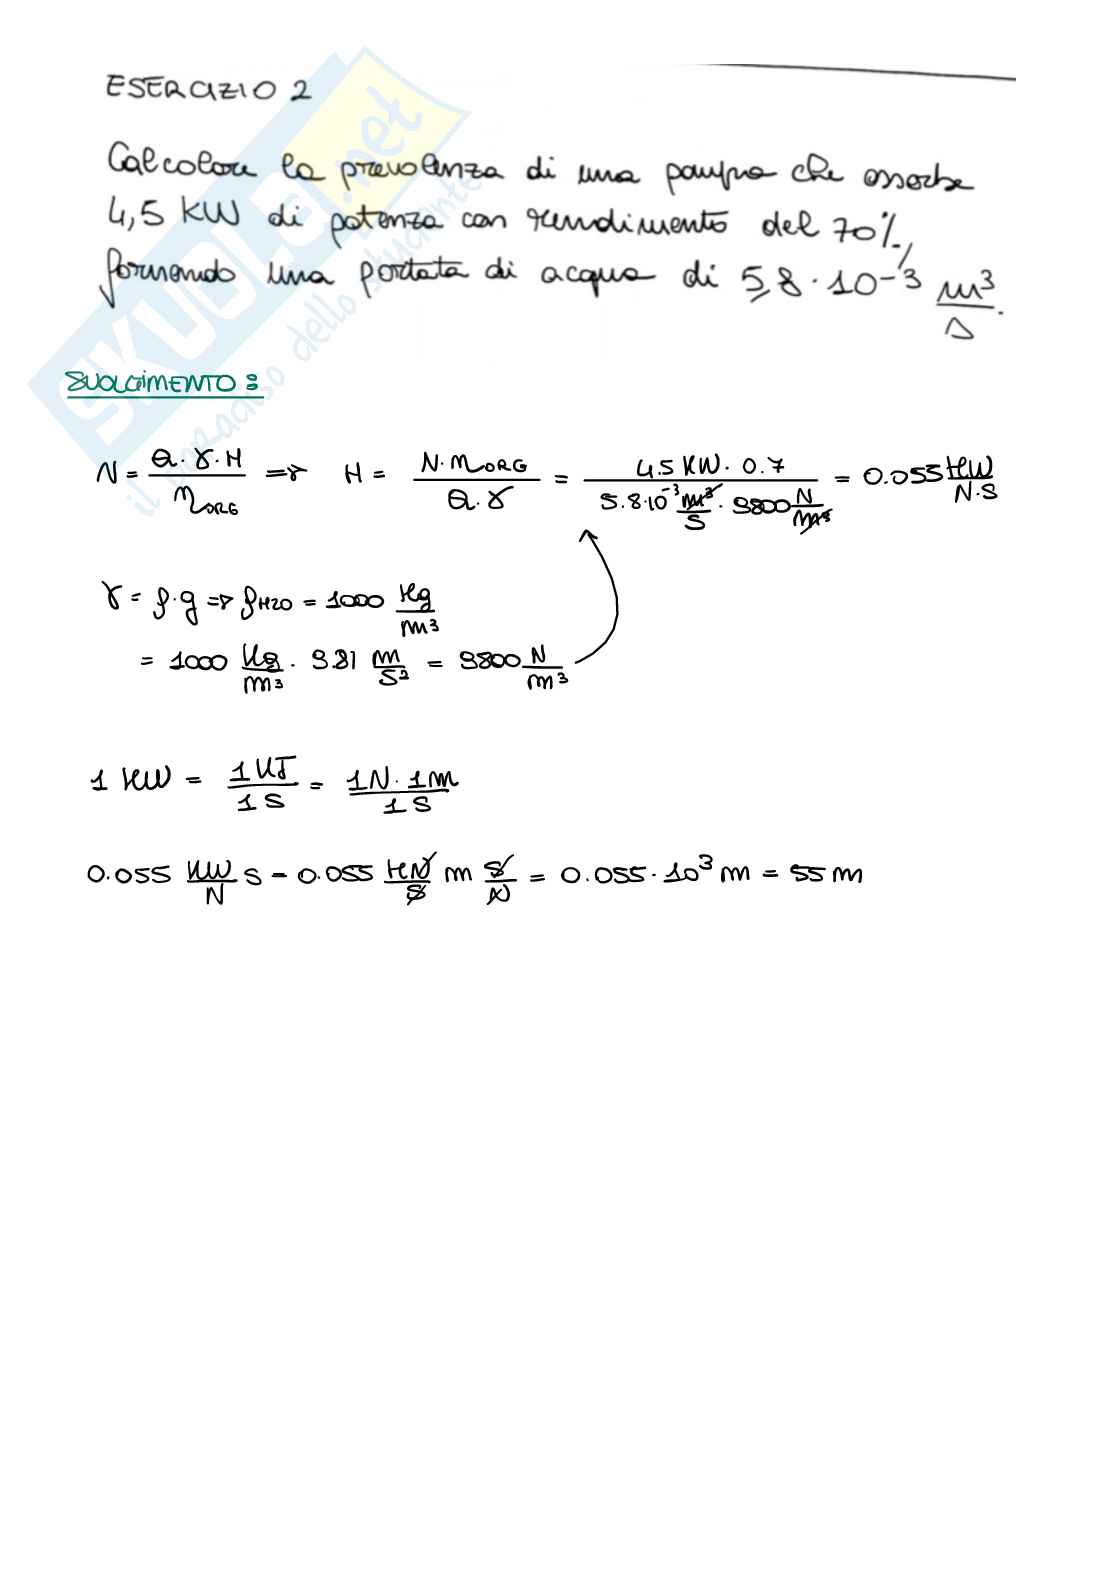 ESERCIZIO 2
Calcolare la prevalenza di una pompa che assorbe
4,5 KW di potenza con rendimento del 70%,
fornendo una portata di acqua di 5,8 · 10⁻³ m³/s.
SVOLGIMENTO :
N = Q · γ · H / η ORG ⇒ H = N · η ORG / Q · γ = 4.5 KW · 0.7 / 5.8 · 10⁻³ m³/s · 9800 N/m³ = 0.055 KW/N · S
γ = ρ · g ⇒ ρ H2O = 1000 Kg/m³
= 1000 Kg/m³ · 9.81 m/s² = 9800 N/m³
1 KW = 1 KJ / 1 S = 1N · 1m / 1 S
0.055 KW/N S = 0.055 KN/S m S/N = 0.055 · 10³ m = 55 m
SKUOLA.net
il paradiso dello studente